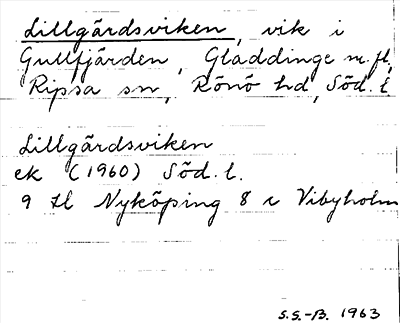 Lillgärdsviken, vik i
Gullfjärden, Gladdinge m.fl,
Ripsa sn, Rönö hd, Söd. l.
Lillgärdsviken
ek (1960) Söd. l.
9 H Nyköping 8 c Vibyholm
S.S.-B. 1963